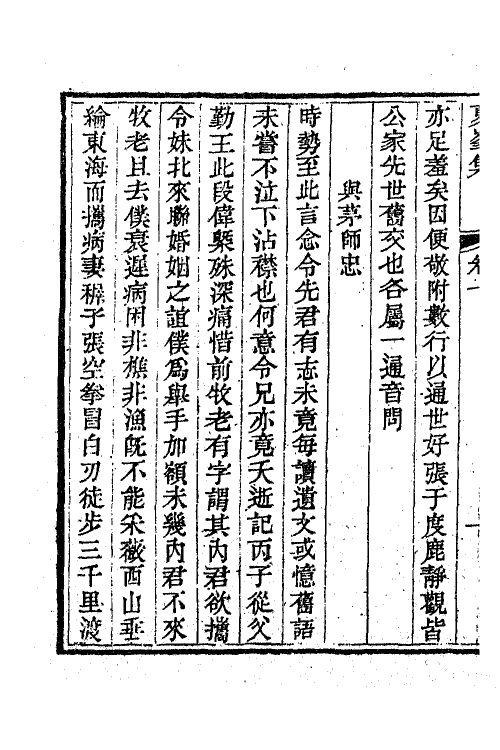 夏峯集
卷一
亦足羞矣因便敬附數行以通世好張于度鹿靜觀皆
公家先世舊交也各屬一通音問
與茅師忠
時勢至此言念令先君有志未竟每讀遺文或憶舊語
未嘗不泣下沾襟也何意令兄亦竟夭逝記丙子從父
勤王此段偉槩殊深痛惜前牧老有字謂其內君欲攜
令妹北來聯婚姻之誼僕爲舉手加額未幾內君不來
牧老且去僕衰遲病困非樵非漁旣不能采薇西山垂
綸東海而攜病妻穉子張空拳冒白刃徒步三千里渡